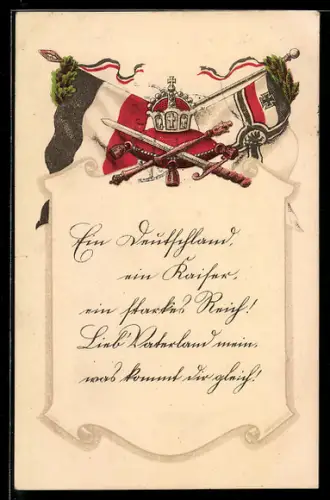 Ein Deutschland,
ein Kaiser,
ein starkes Reich!
Lieb' Vaterland mein,
was kommt dir gleich!